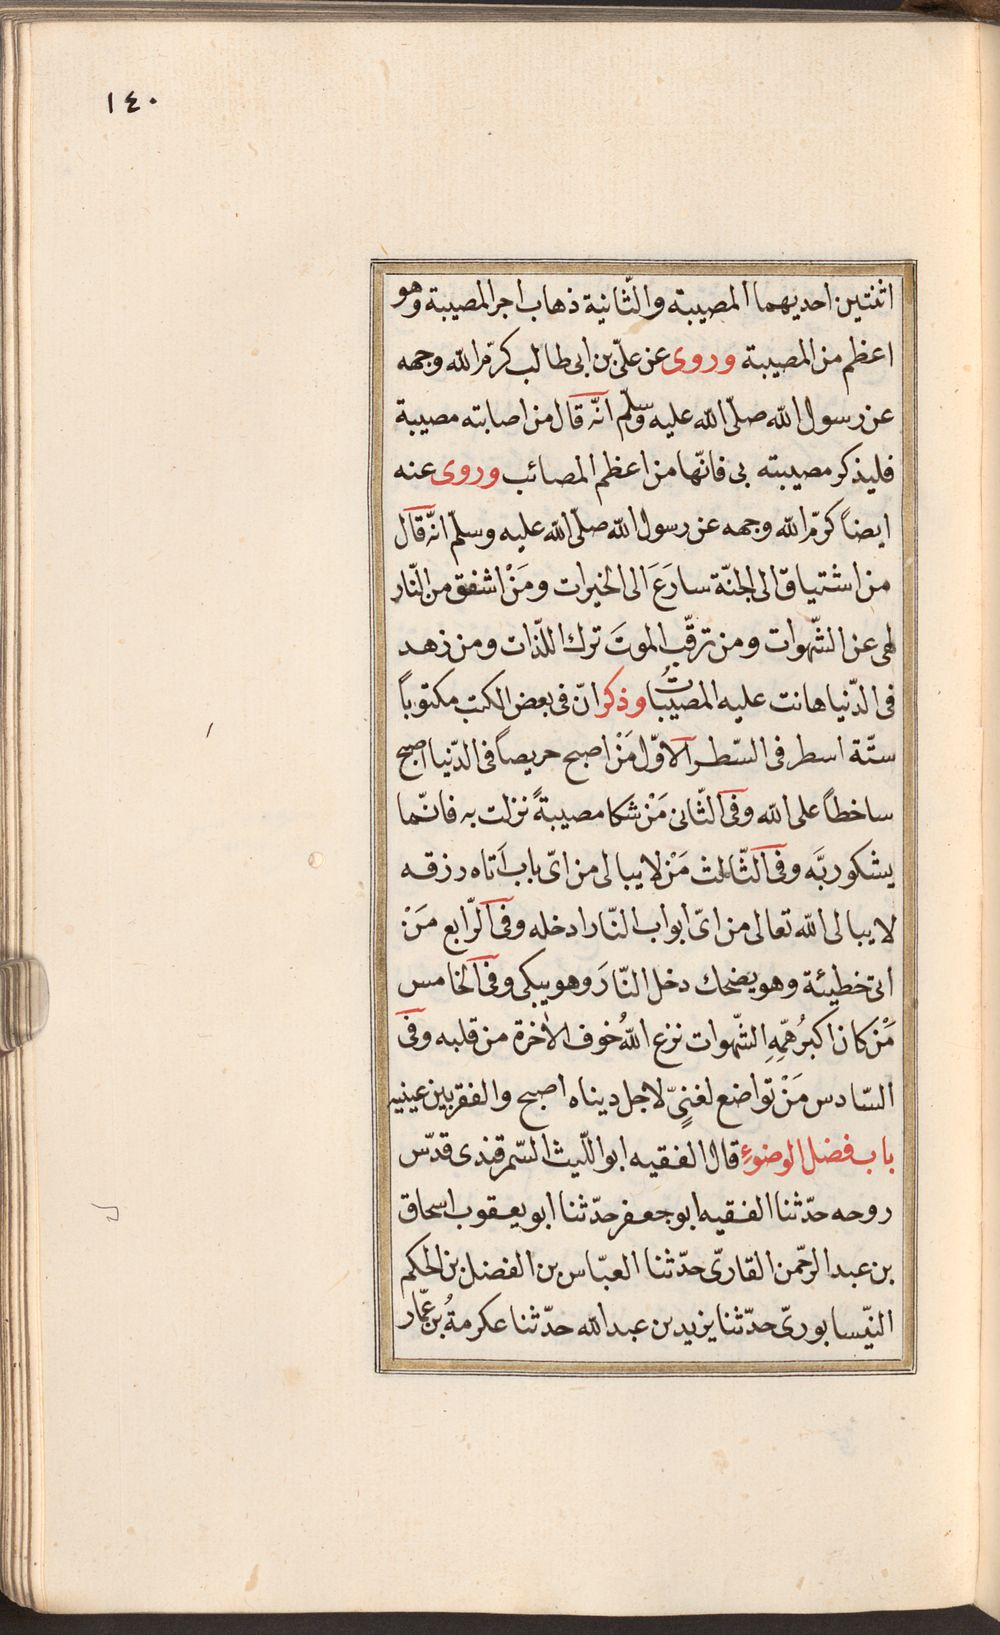 ١٤٠
اثنتين احديهما المصيبة والثّانية ذهاب اجر المصيبة وهو
اعظم من المصيبة وروى عن علىّ بن ابى طالب كرّم الله وجهه
عن رسول الله صلّى الله عليه وسلّم انّه قال من اصابته مصيبة
فليذكر مصيبته بى فانّها من اعظم المصائب وروى عنه
ايضاً كرّم الله وجهه عن رسول الله صلّى الله عليه وسلّم انّه قال
من اشتياق الى الجنّة سارَعَ الى الخيرات ومَنْ اشفق من النّار
لهى عن الشّهوات ومن ترقّب الموتَ ترك اللّذات ومن زهد
فى الدّنيا هانت عليه المصيباتُ وذكر انّ فى بعض الكتب مكتوباً
ستّة اسطر فى السّطر الاوّل مَنْ اصبح حريصاً فى الدّنيا اصبح
ساخطاً على الله وفى الثّانى مَنْ شكا مصيبةً نزلت به فانّما
يشكو ربَّه وفى الثّالث مَنْ لا يبالى من اىّ باب اَتاه رزقه
لا يبالى الله تعالى من اىّ ابواب النّار ادخله وفى الرّابع مَنْ
اتى خطيئة وهو يضحك دخل النّارَ وهو يبكى وفى الخامس
مَنْ كان اكبرُ همِّهِ الشّهوات نزع اللهُ خوف الاٰخرة من قلبه وفى
السّادس مَنْ تواضع لغنىٍّ لاجل ديناه اصبح والفقر بين عينيه
باب فضل الوضوءِ قال الفقيه ابو اللّيث السّمرقندى قدّس
روحه حدّثنا الفقيه ابو جعفر حدّثنا ابو يعقوب اسحاق
بن عبد الرحّمن القارىّ حدّثنا العبّاس بن الفضل بن الحكم
النيّسابورىّ حدّثنا يزيد بن عبد الله حدّثنا عكرمةُ بن عمّار